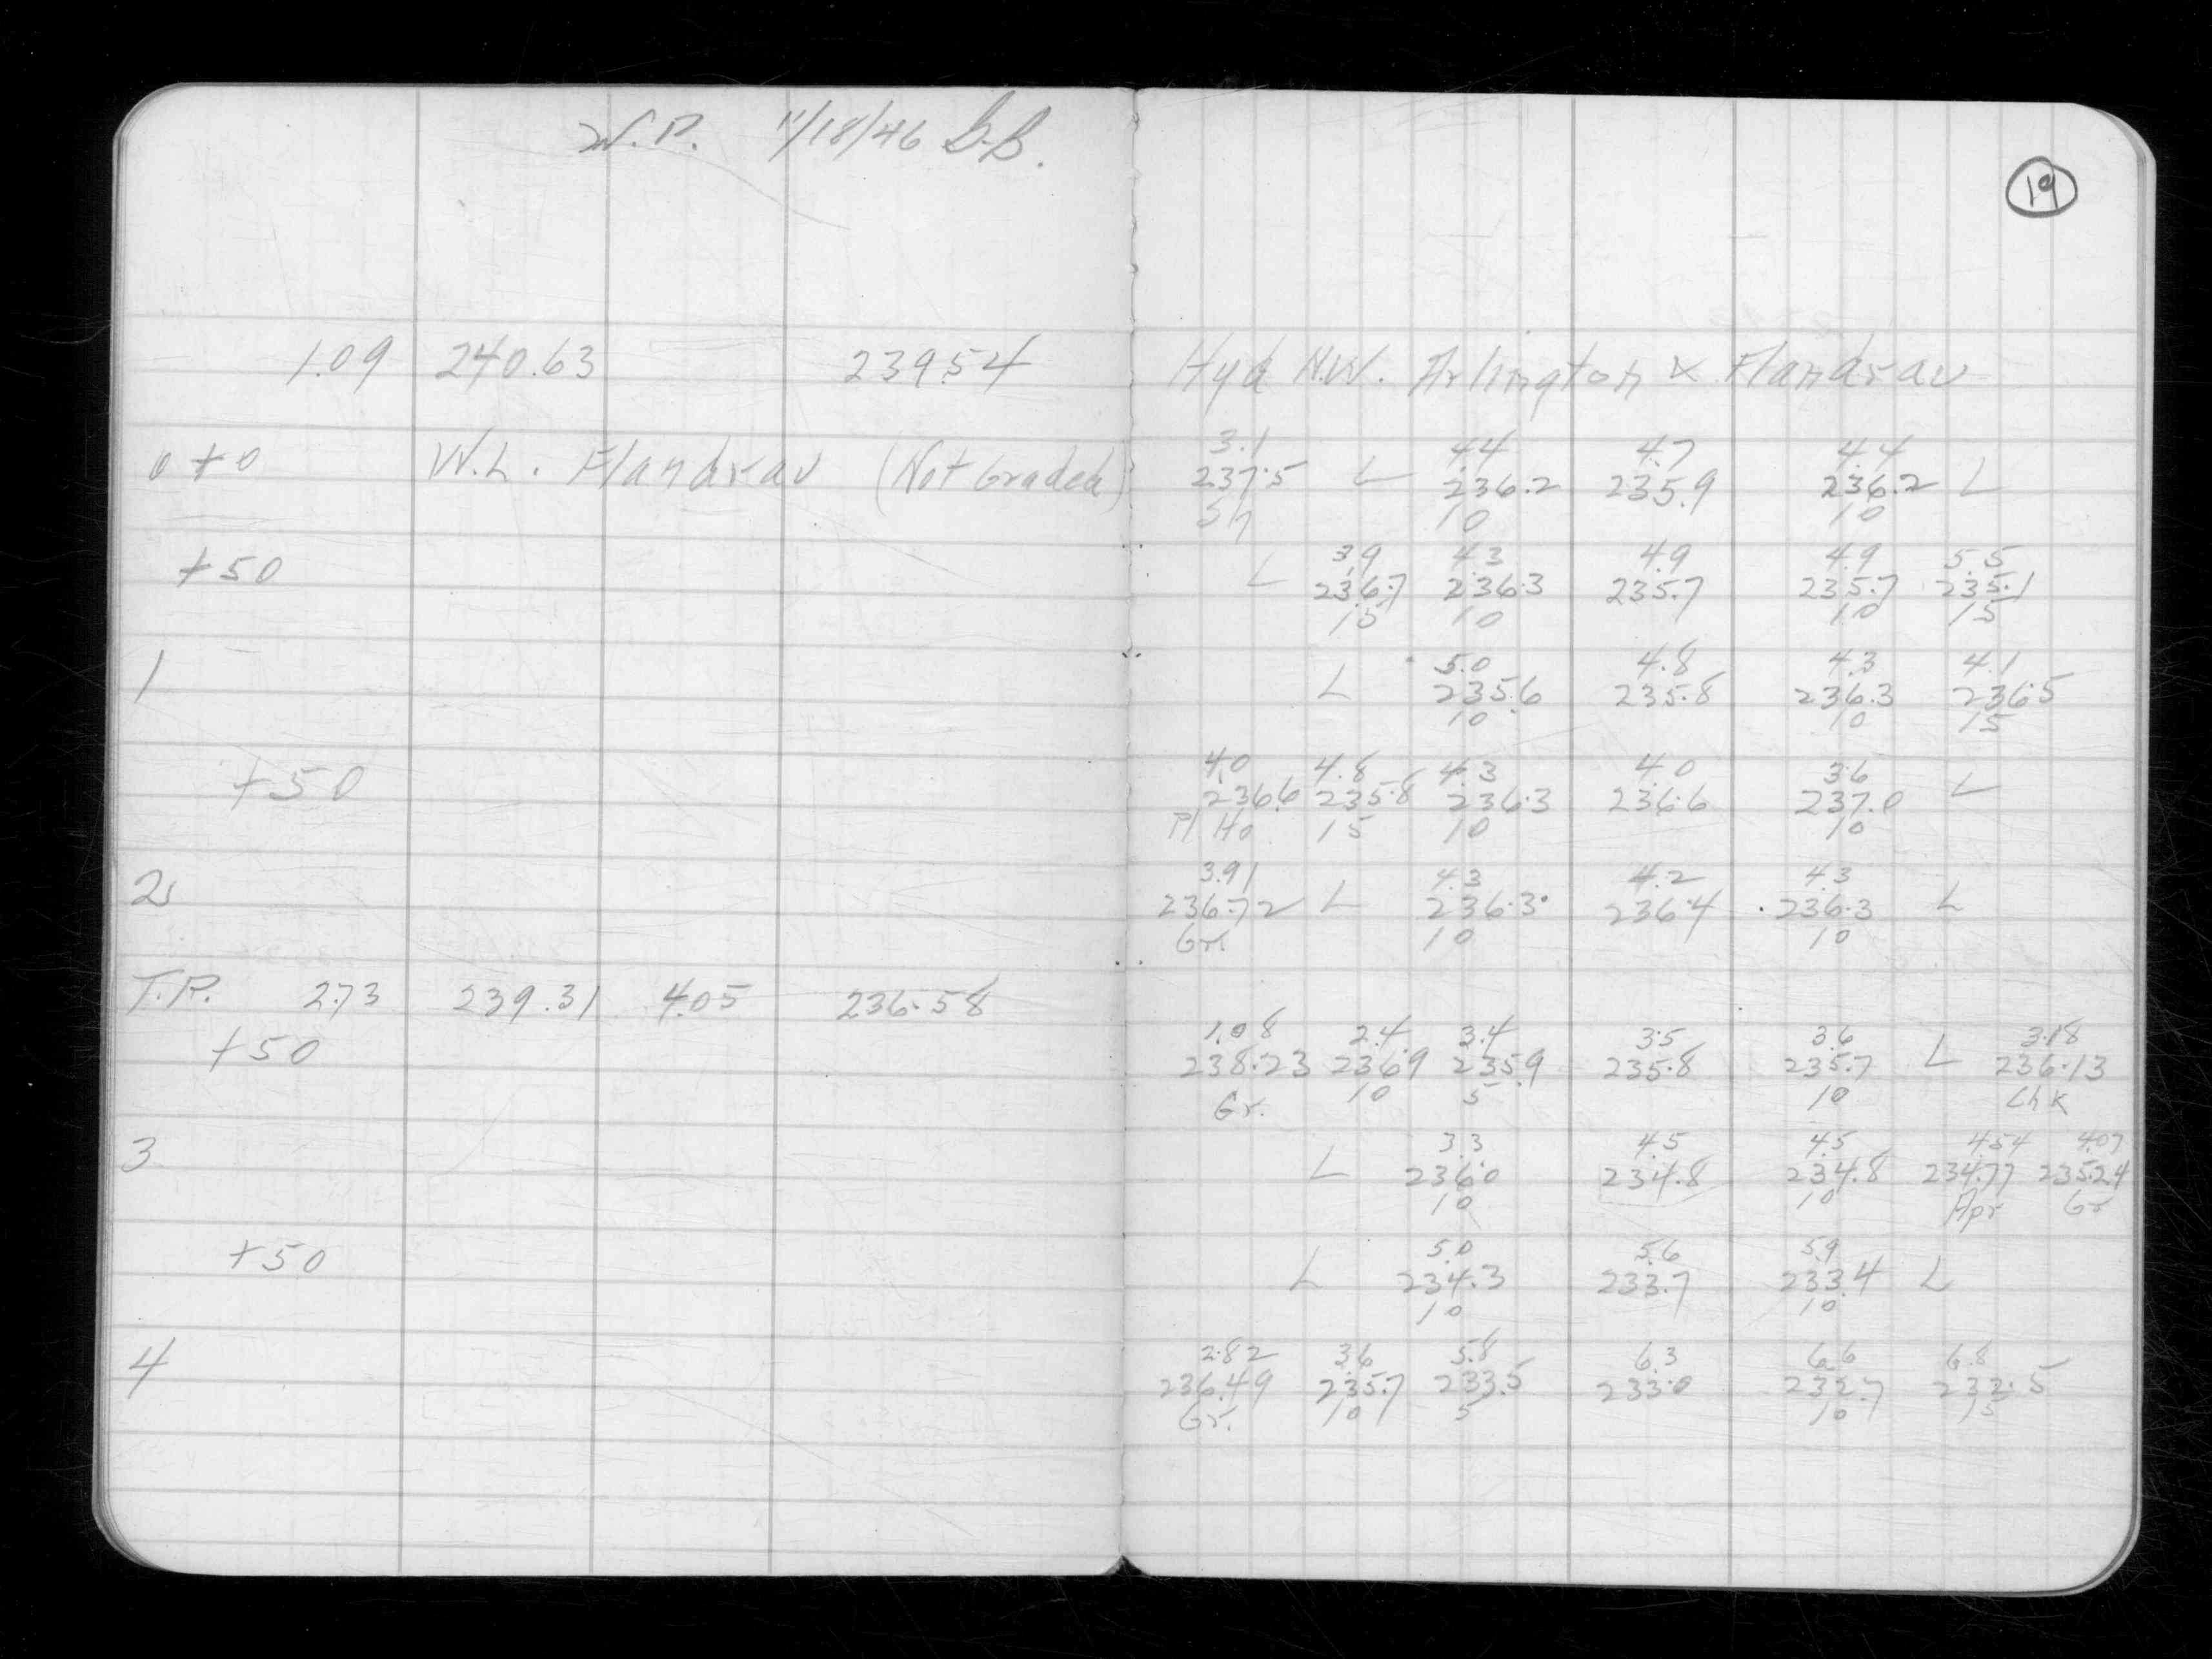 W.P. 11/18/46 G.B.
19
1.09 240.63 239.54 Hyd N.W. Arlington x Flandrau
3.1 4.4 4.7 4.4
0+0 W.L. Flandrau (Not Graded) 237.5 L 236.2 235.9 236.2 L
Sh 10 10
3.9 4.3 4.9 4.9 5.5
+50 L 236.7 236.3 235.7 235.7 235.1
15 10 10 15
5.0 4.8 4.3 4.1
1 L 235.6 235.8 236.3 236.5
10 10 15
4.0 4.8 4.3 4.0 3.6
+50 236.6 235.8 236.3 236.6 237.0 L
Pl Ho 15 10 10
3.91 4.3 4.2 4.3
2 236.72 L 236.3 236.4 236.3 L
Gr. 10 10
T.P. 2.73 239.31 4.05 236.58
1.08 2.4 3.4 3.5 3.6 3.18
+50 238.23 236.9 235.9 235.8 235.7 L 236.13
Gr. 10 5 10 Chk
3.3 4.5 4.5 4.54 4.07
3 L 236.0 234.8 234.8 234.77 235.24
10 10 Apr Gr
5.0 5.6 5.9
+50 L 234.3 233.7 233.4 L
10 10
2.82 3.6 5.8 6.3 6.6 6.8
4 236.49 235.7 233.5 233.0 232.7 232.5
Gr. 10 5 10 15